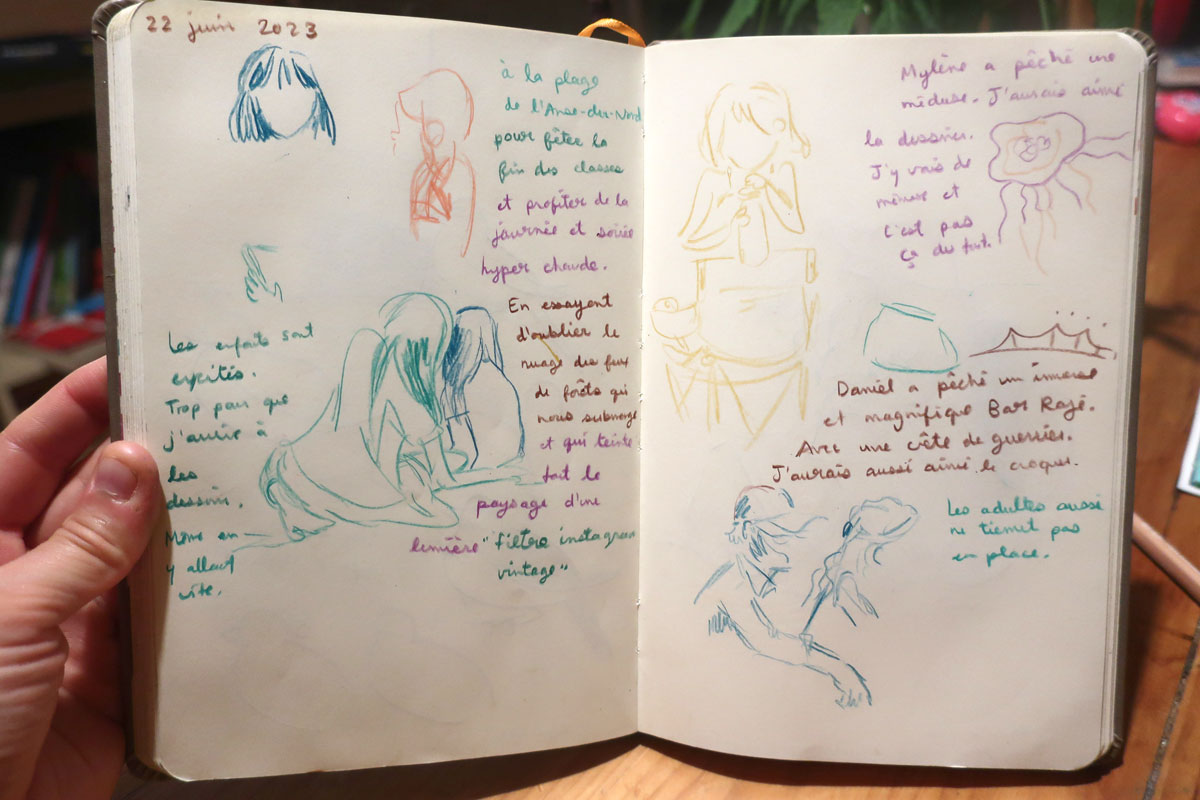 22 juin 2023
à la plage
de l'Anse-du-Nord
pour fêter la
fin des classes
et profiter de la
journée et soirée
hyper chaude.
En essayant
d'oublier le
nuage des feux
de forêts qui
nous submerge
et qui teinte
tout le
paysage d'une
lumière "filtre instagram
vintage"
Les enfants sont
excités.
Trop pour que
j'arrive à
les
dessiner.
Même en
y allant
vite.
Mylène a pêché une
méduse. J'aurais aimé
la dessiner.
J'y vais de
mémoire et
c'est pas
ça du tout.
Daniel a pêché un immense
et magnifique Bar Rayé.
Avec une crête de guerrier.
J'aurais aussi aimé le croquer.
Les adultes aussi
ne tiennent pas
en place.